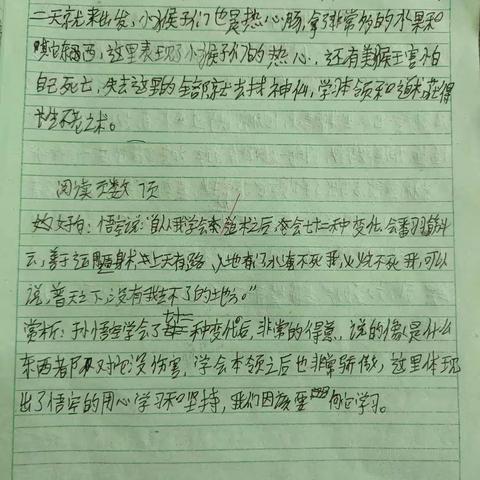 二天就来出发，小猴子们也是热心肠，拿了非常多的水果和
其它东西，这里表现了小猴子们的热心，还有美猴王害怕
自己死亡，失去这里的全部就去找神仙，学习本领和道术获得
长生不老之术。
阅读页数 顶
好句：悟空说："自从我学会本领之后，会七十二种变化，会翻筋斗
云，善于隐身术，上天有路，入地有门，水淹不死我，火烧不死我，可以
说，普天之下，没有我去不了的地方。"
赏析：孙悟空学会了七十二种变化后，非常的得意，说的像是什么
东西都对他没伤害，学会本领之后也非常骄傲，这里体现
出了悟空的用心学习和坚持，我们因该要向它学习。